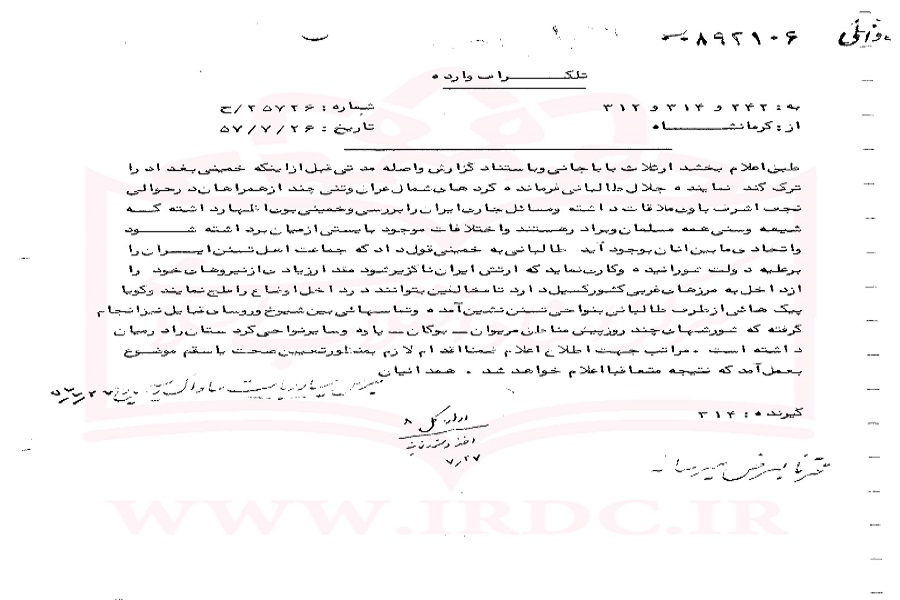 ۸۹۲۱۰۶
تلگراف وارده
به : ۲۴۲ و ۳۱۴ و ۳۱۲ شماره : ۲۵۷۲۶/ح
از : کرمانشاه تاریخ : ۵۷/۷/۲۶
طبق اعلام بخشد ارثلاث باباجانی وباستناد گزارش واصله مدتی قبل ازاینکه خمینی بغداد را
ترک کند نماینده جلال طالبانی فرمانده کردهای شمال عراق وتنی چند ازهمراهان درحوالی
نجف اشرف باوی ملاقات داشته ومسائل جاری ایران را بررسی وخمینی بوی اظهارداشته که
شیعه وسنی همه مسلمان وبرادر هستند واختلافات موجود بایستی ازمیان برداشته شود
واتحادی مابین آنان بوجود آید طالبانی به خمینی قول داد که جماعت اهل تسنن ایران را
برعلیه دولت شورانیده وکاری نماید که ارتش ایران ناگزیرشود مقدارزیادی ازنیروهای خود را
ازداخل به مرزهای غربی کشورگسیل دارد تا مخالفین بتوانند درداخل اوضاع را ملتهب نمایند وگویا
پیک هائی ازطرف طالبانی بنواحی تسنن نشین آمده وتماسهائی بین شیوخ وروسای قبایل نیزانجام
گرفته که شورشهای چند روزپیش مناطق مریوان ـ بوکان ـ پاوه وسایرنواحی کردستان رادرمیان
داشته است . مراتب جهت اطلاع اعلام ضمنا اقدام لازم بمنظورتعیین صحت یاسقم موضوع
بعمل آمد که نتیجه متعاقبا اعلام خواهد شد . همدانیان
گیرنده : ۳۱۴
اداره کل ۸
۷/۲۷